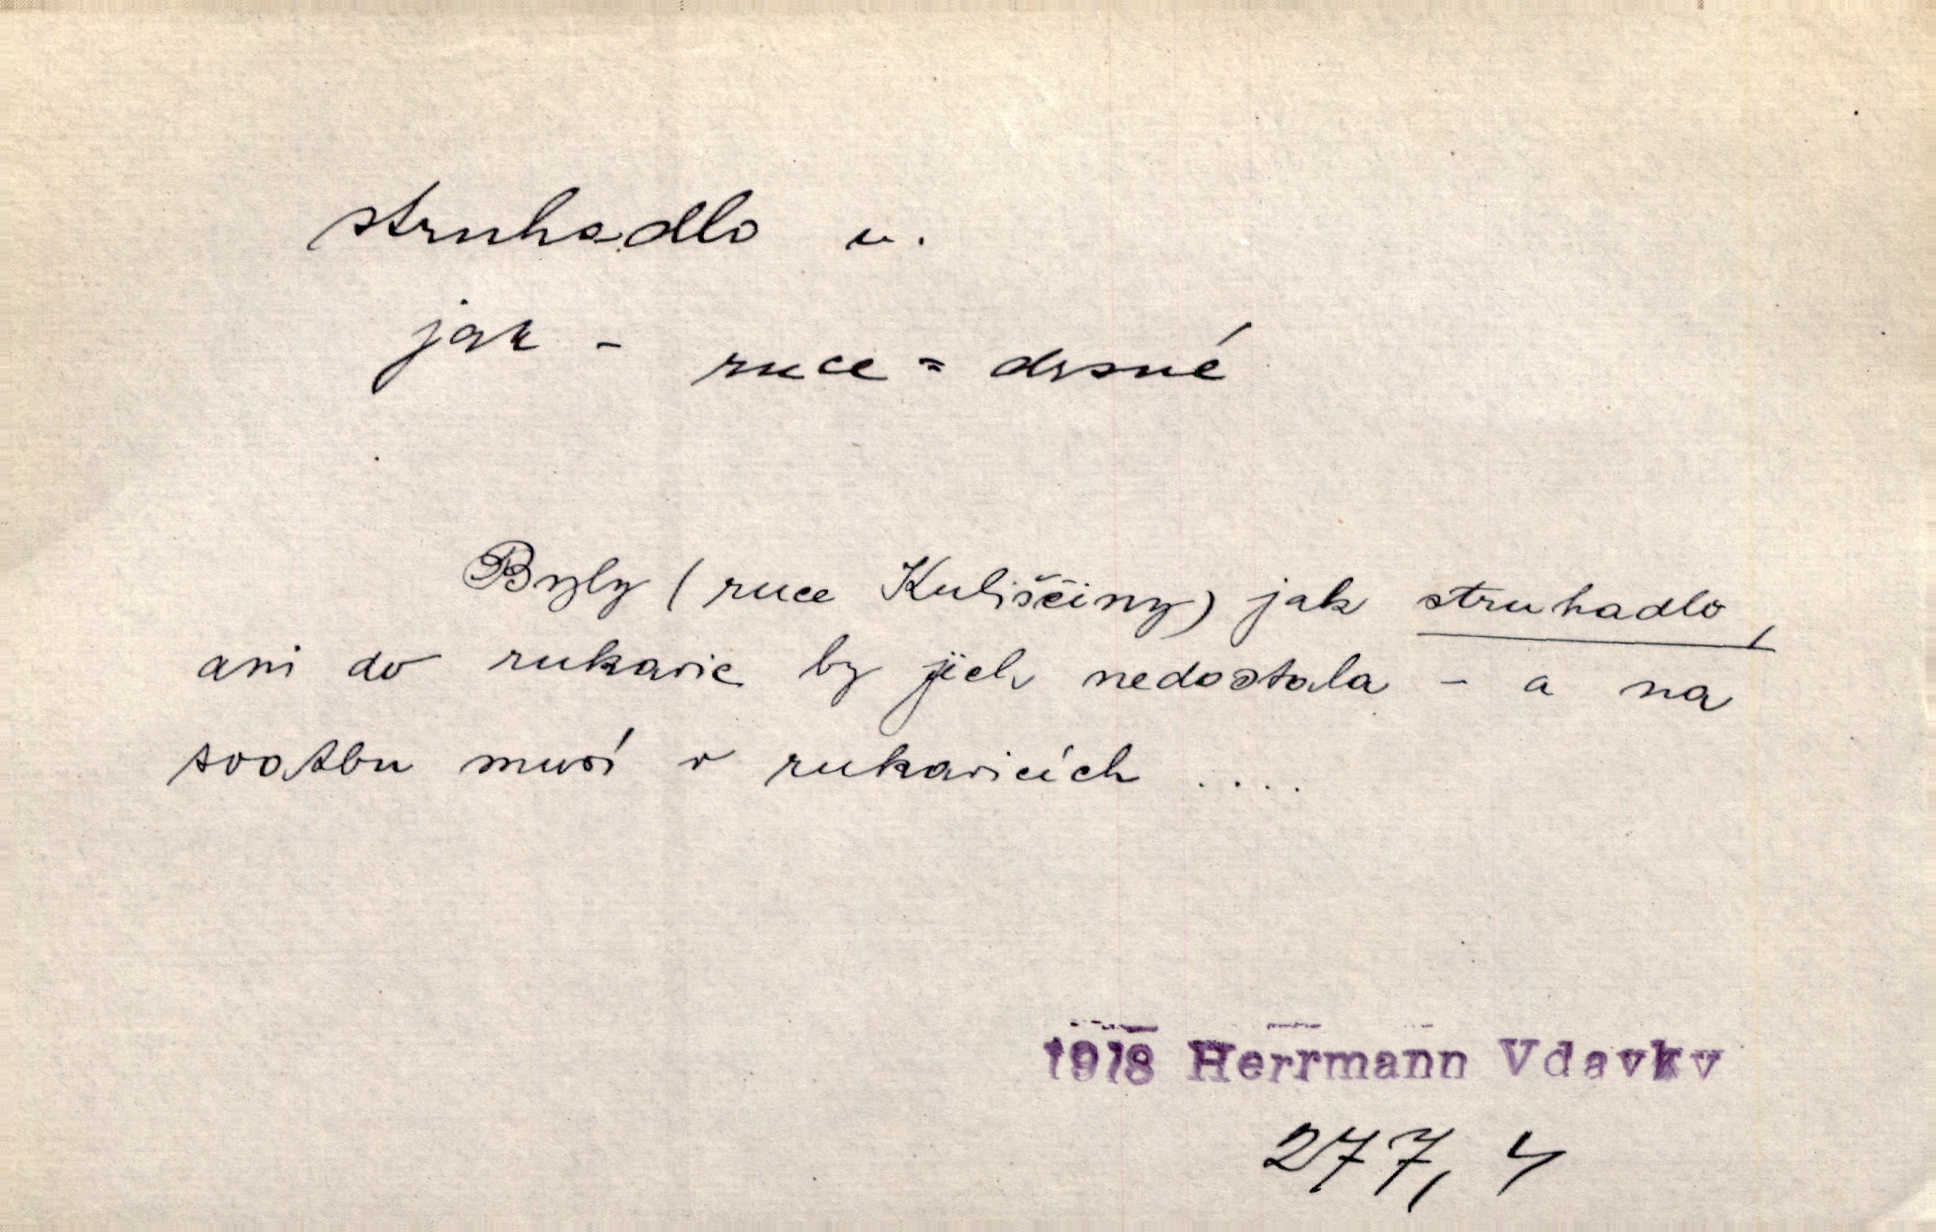 struhadlo n.
jak - ruce = drsné
Byly (ruce Kuliščiny) jak struhadlo,
ani do rukavic by jich nedostala - a na
svatbu musí v rukavicích ....
1918 Herrmann Vdavky
277, 4